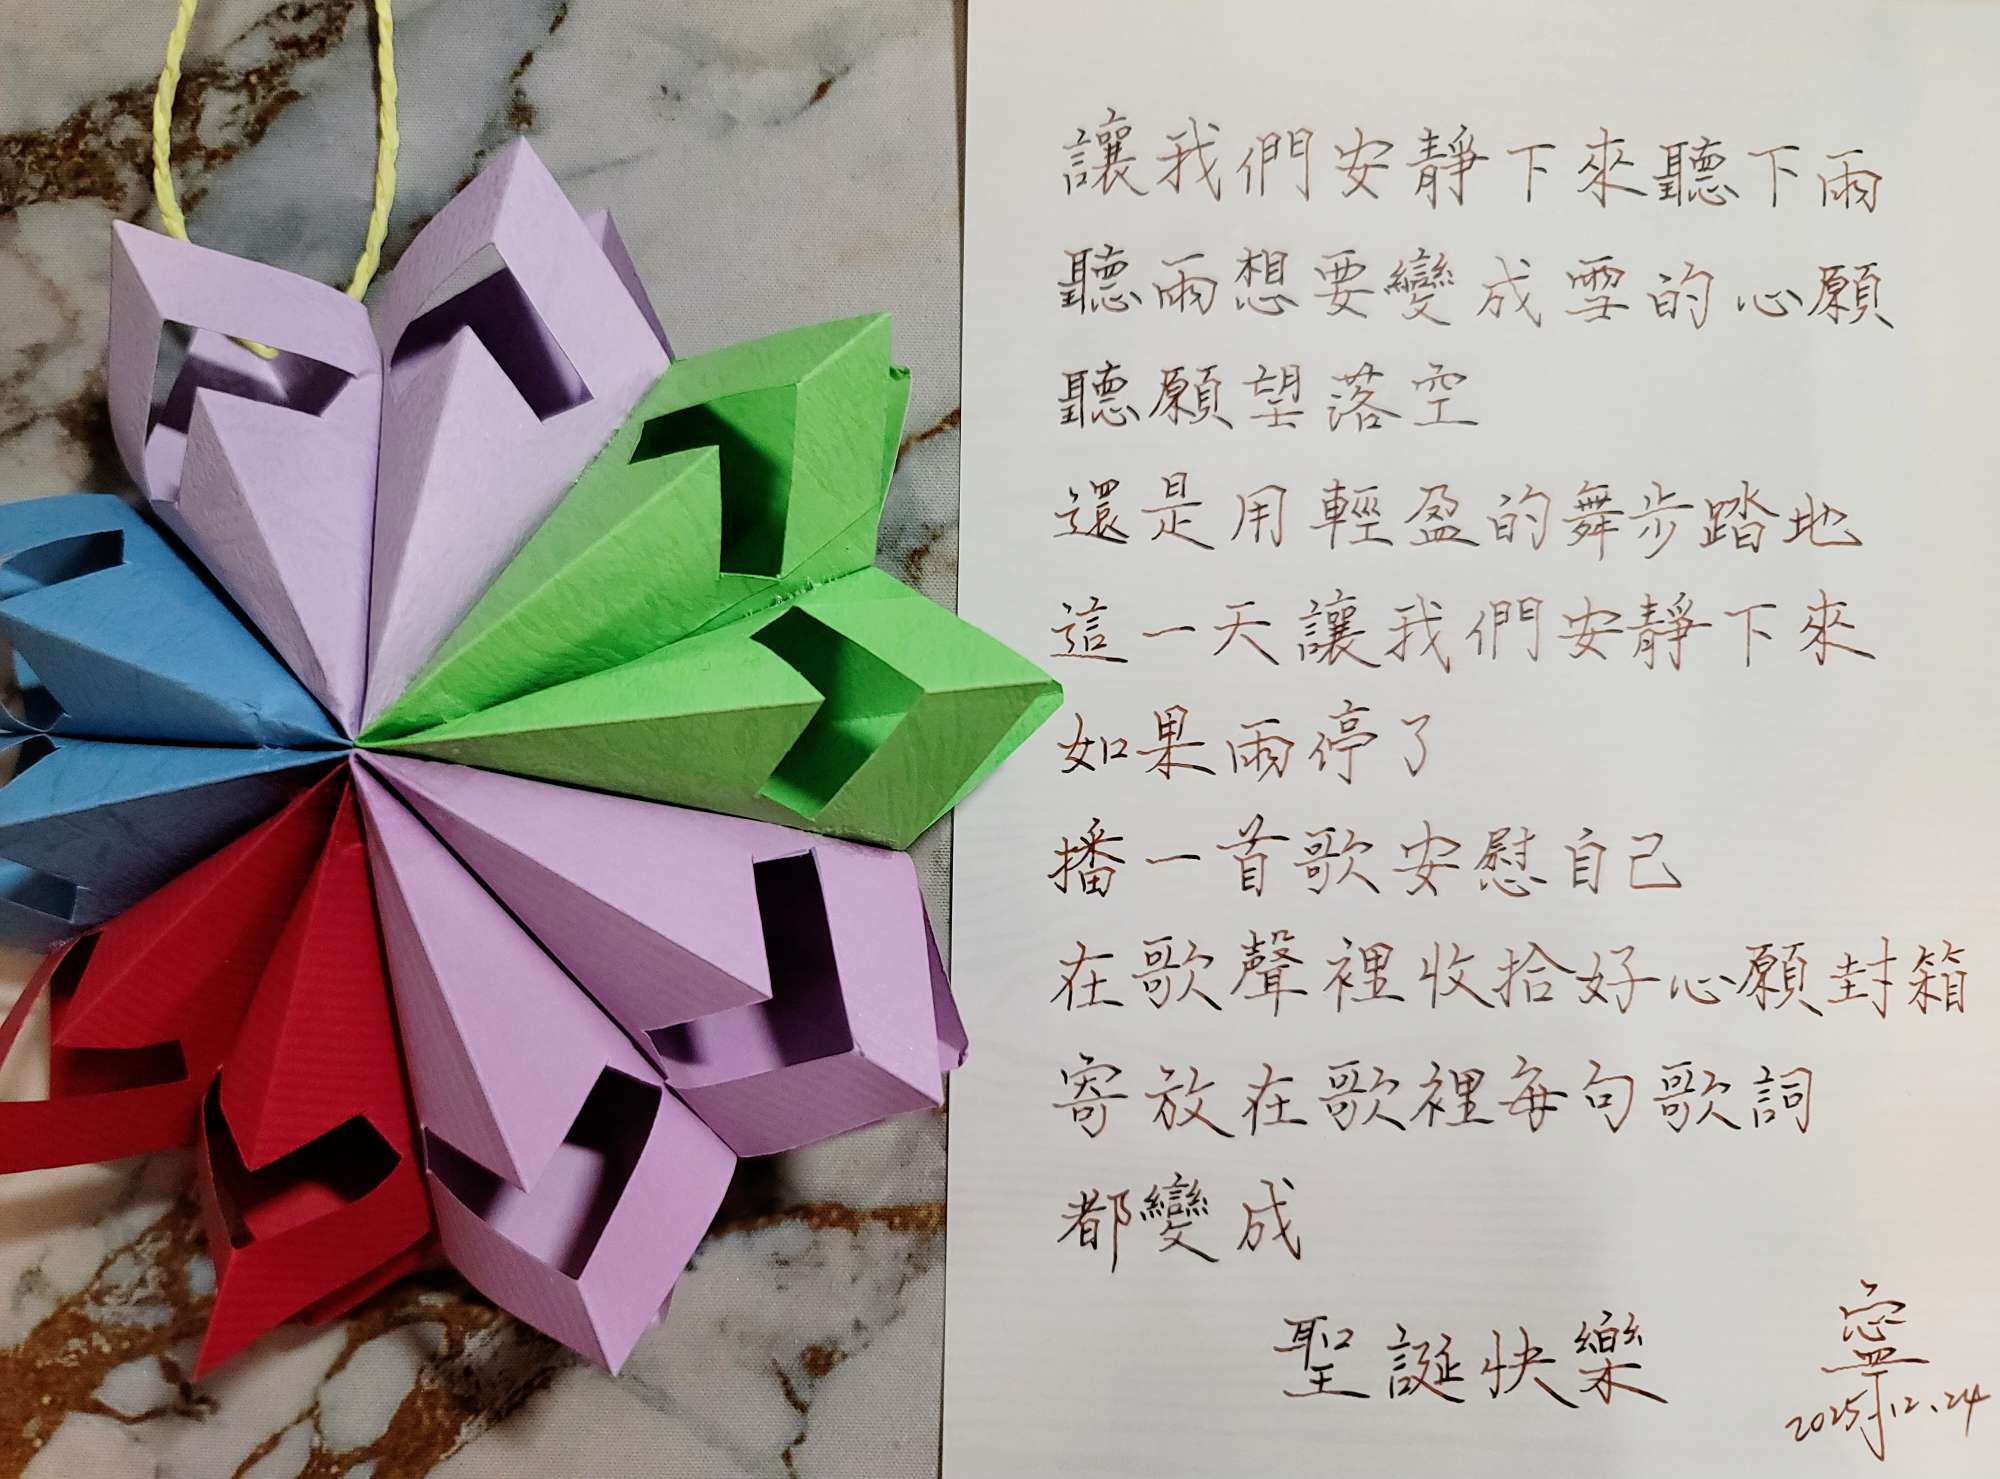 讓我們安靜下來聽下雨
聽雨想要變成雪的心願
聽願望落空
還是用輕盈的舞步踏地
這一天讓我們安靜下來
如果雨停了
播一首歌安慰自己
在歌聲裡收拾好心願封箱
寄放在歌裡每句歌詞
都變成
聖誕快樂
寧
2025.12.24